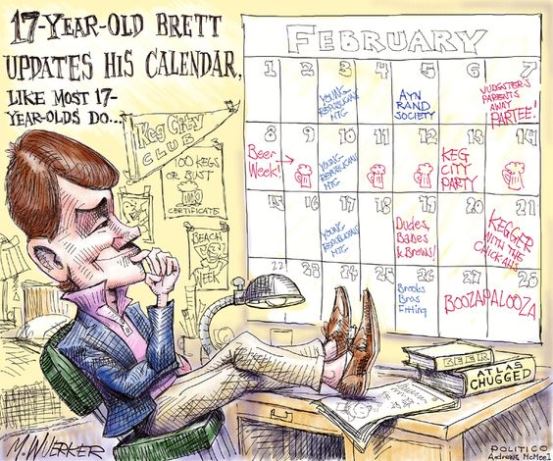 17-YEAR-OLD BRETT
UPDATES HIS CALENDAR,
LIKE MOST 17-
YEAR-OLDS DO...
KEG CITY
CLUB
100 KEGS
OR BUST
CERTIFICATE
BEACH
WEEK
FEBRUARY
1 2 3 4 5 6 7
YOUNG
REPUBLICAN
MTG
AYN
RAND
SOCIETY
JUDGSTER'S
PARENTS
AWAY
PARTEE!
8 9 10 11 12 13 14
Beer
Week!
YOUNG
REPUBLICAN
MTG
KEG
CITY
PARTY
15 16 17 18 19 20 21
YOUNG
REPUBLICAN
MTG
Dudes,
Babes
& Brews!
KEGGER
WITH THE
CHICK
22 23 24 25 26 27 28
Brooks
Bros
Fitting
BOOZAPALOOZA
BEER
ATLAS
CHUGGED
M. WUERKER
POLITICO
Andrews McMeel